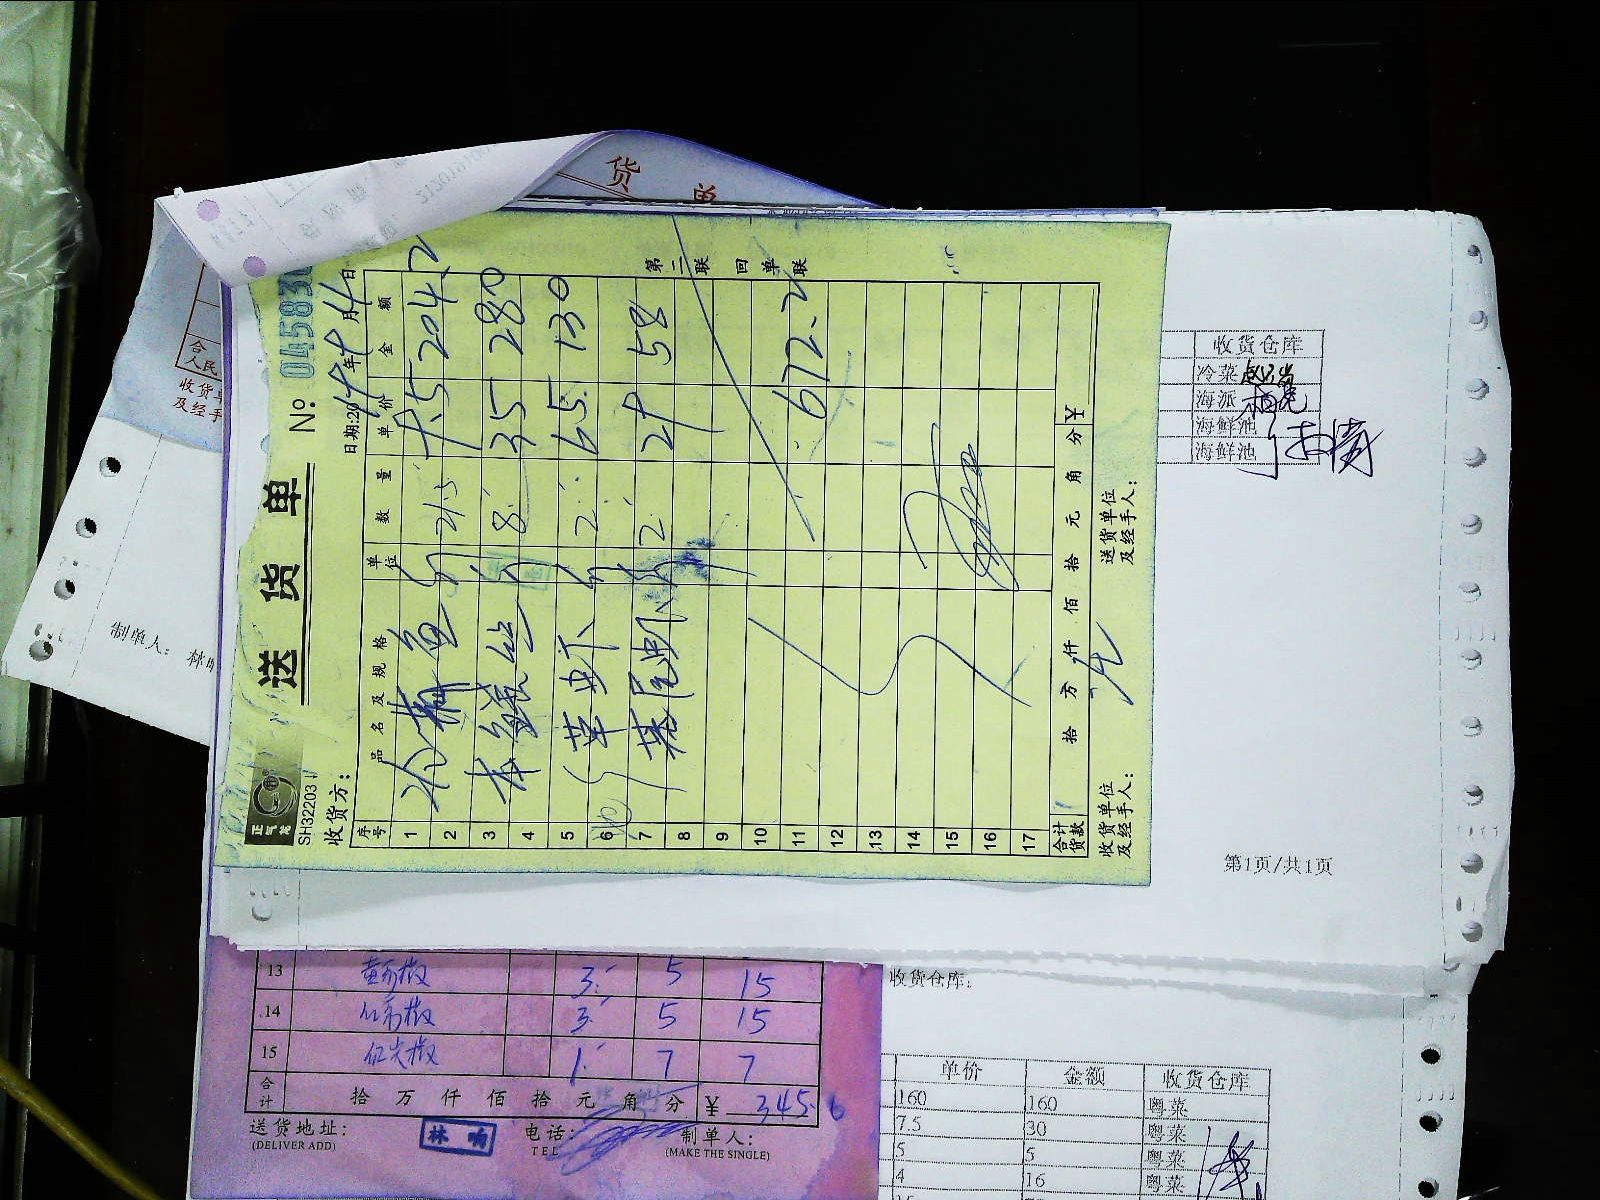 货 单
送 货 单
No: 04583
SH32203
收货方:
日期:2019年9月14日
序号 品名及规格 单位 数量 单价 金额
1 小黄鱼 斤 21.5 9.5 204.2
2
3 本 斤 8 35 280
4
5 草虾 斤 2 65 130
6
7 基围虾 斤 2 29 58
8
9
10
11 672.2
12
13
14
15
16
17
合计货款 拾 万 仟 佰 拾 元 角 分 ¥
收货单位及经手人:
送货单位及经手人:
第二联 回单联
合
人民
收货单
及经手
制单人: 林
收货仓库
冷菜
海派
海鲜池
海鲜池
第1页/共1页
13 3 5 15
14 3 5 15
15 红尖椒 1 7 7
合计 拾 万 仟 佰 拾 元 角 分 ¥ 345.6
送货地址:
(DELIVER ADD)
林 响
电话:
TEL
制单人:
(MAKE THE SINGLE)
收货仓库:
单价 金额 收货仓库
160 160 粤菜
7.5 30 粤菜
5 5 粤菜
4 16 粤菜